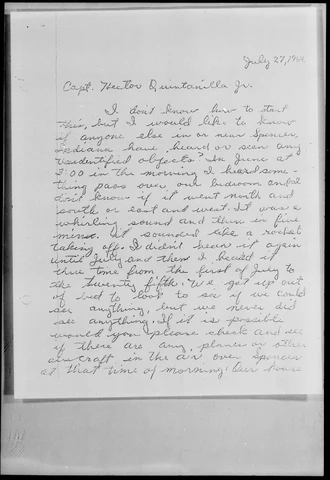 July 27, 1964
Capt. Hector Quintanilla Jr.
I don't know how to start
this, but I would like to know
if anyone else in or near Spencer,
Indiana have, heard or seen any
unidentified objects? In June at
3:00 in the morning I heard some-
thing pass over our bedroom and I
don't know if it went north and
south or east and west. It was a
whirling sound and then in five
minst. it sounded like a rocket
taking off. I didn't hear it again
until July and then I heard it
three time from the first of July to
the twenty fifth. We get up out
of bed to look to see if we could
see anything, but we never did
see anything. If it is possible
would you please check and see
if there are any, planes or other
aircraft in the air over Spencer
at that time of morning? Our house